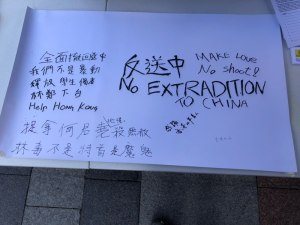 全面撤回送中
我們不是暴動
釋放學生傷者
林鄭下台
Help Hong Kong
反送中
NO EXTRADITION
TO CHINA
MAKE LOVE
No shoot!
提拿何君堯 殺無赦
林哥不是特首是魔鬼